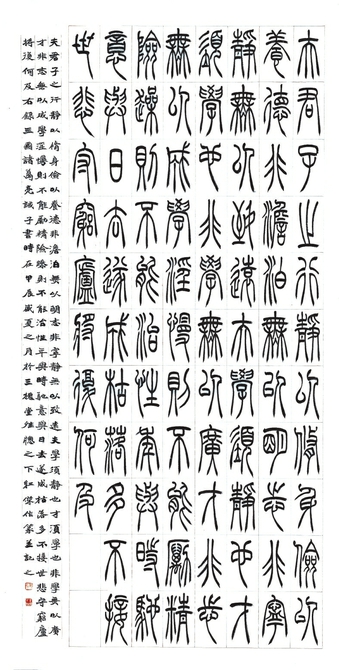 夫君子之行靜以脩身儉以
養德非澹泊無以明志非寧
靜無以致遠夫學須靜也才
須學也非學無以廣才非志
無以成學淫慢則不能勵精
險躁則不能治性年與時馳
意與日去遂成枯落多不接
世悲守窮廬將復何及
夫君子之行靜以脩身儉以養德非澹泊無以明志非寧靜無以致遠夫學須靜也才須學也非學無以廣
才非志無以成學淫慢則不能勵精險躁則不能治性年與時馳意與日去遂成枯落多不接世悲守窮廬
將復何及右錄三國諸葛亮誡子書時在甲辰盛夏之月於三槐堂之下并記之